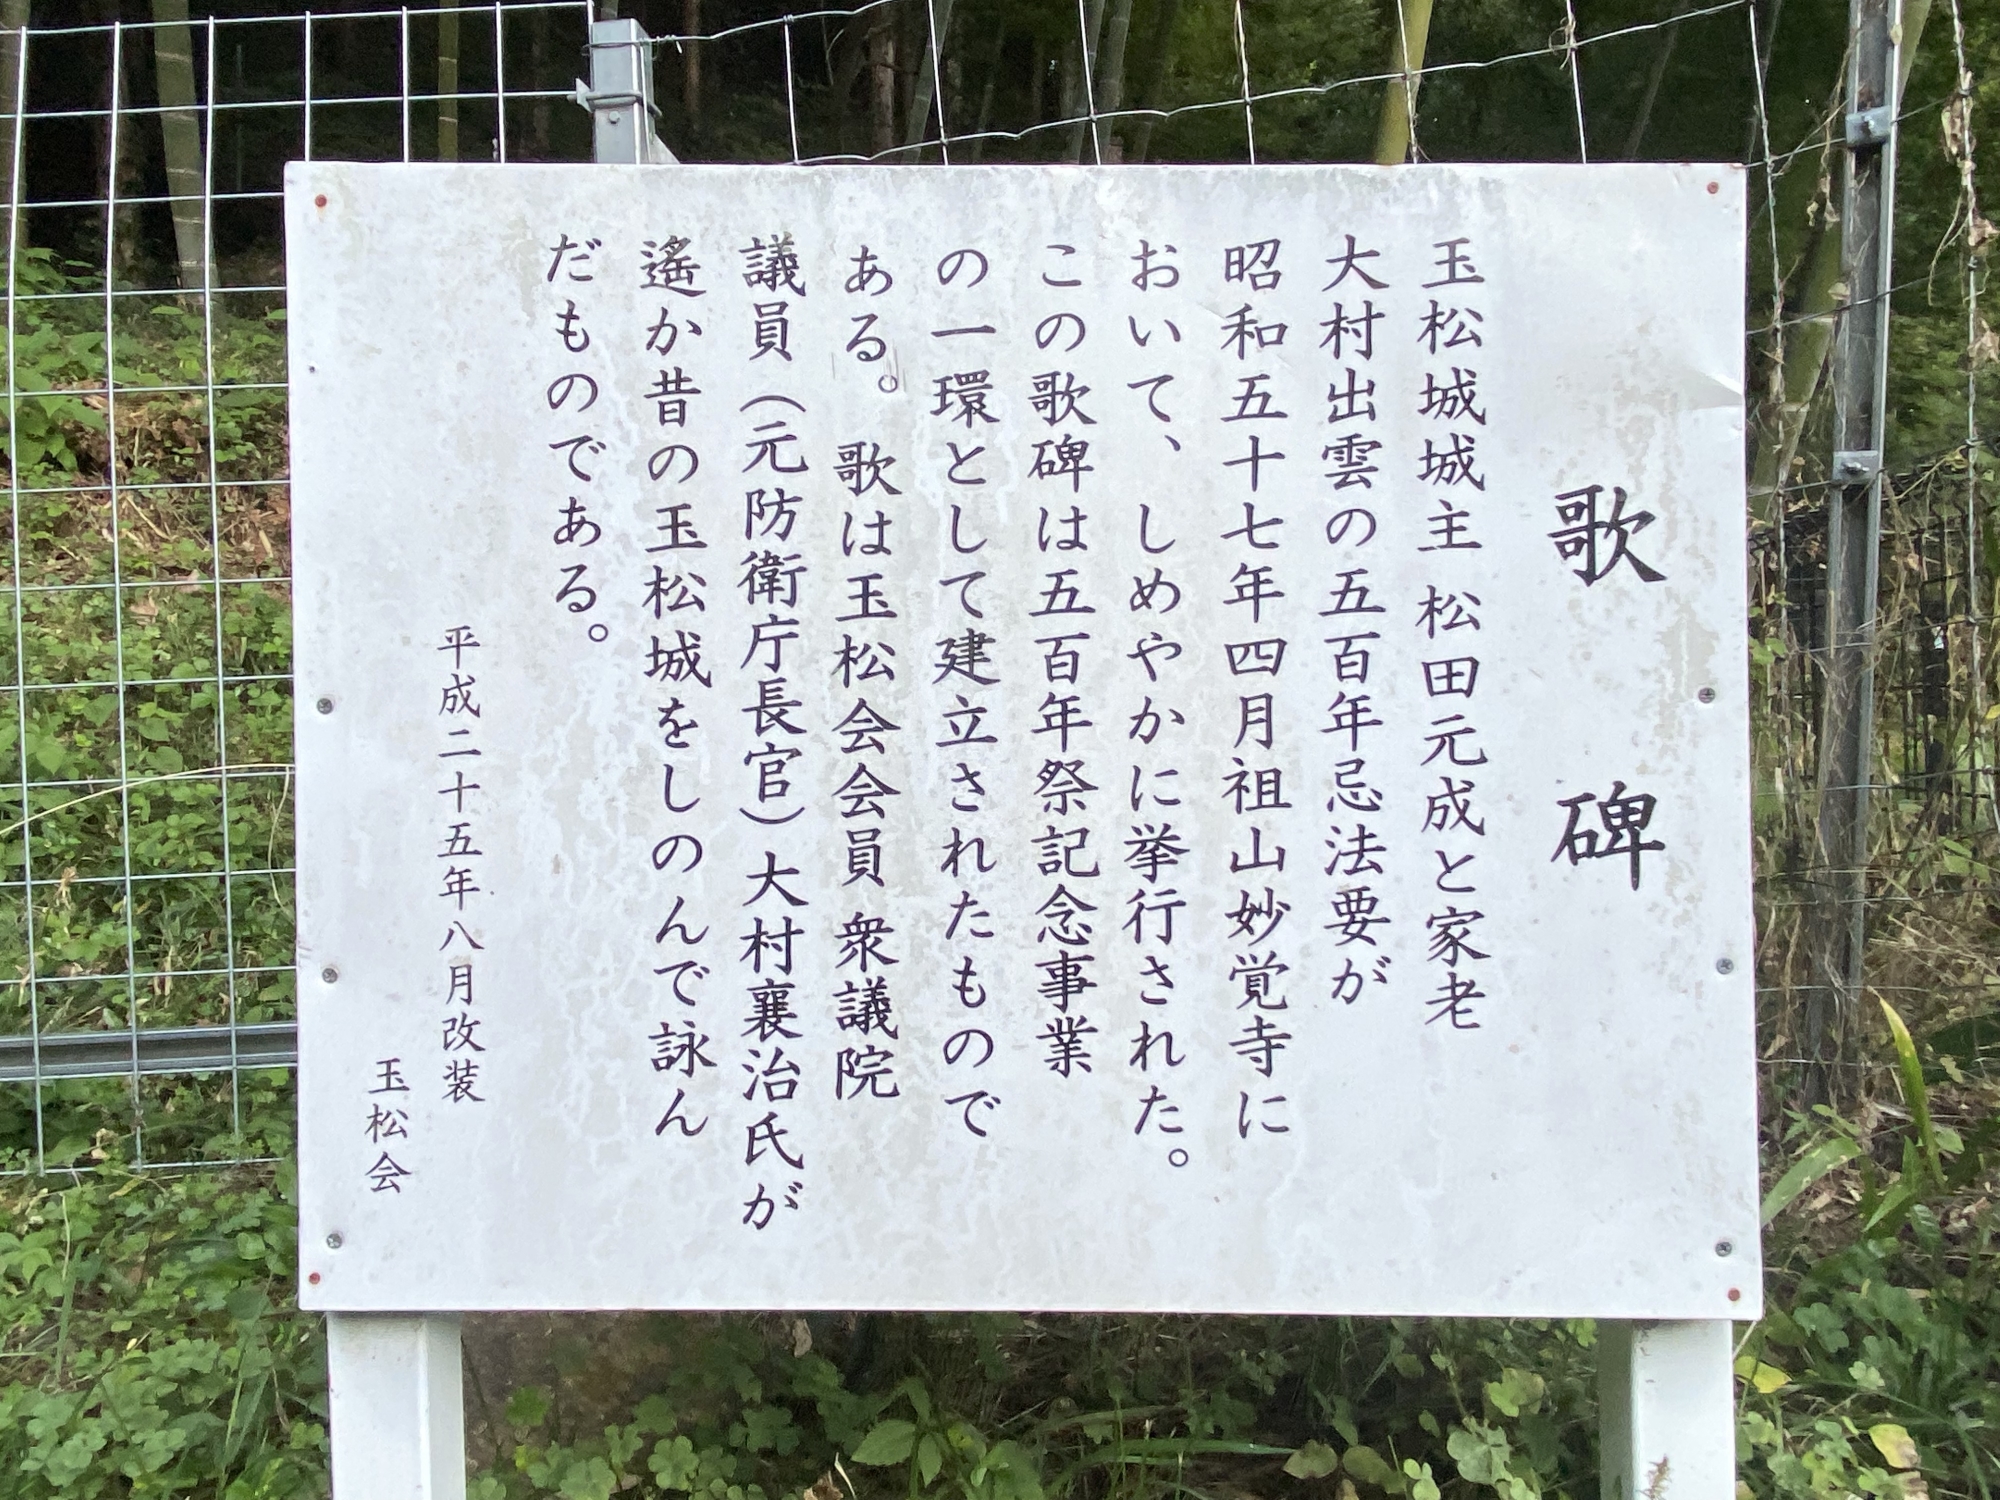 歌碑
玉松城城主 松田元成と家老
大村出雲の五百年忌法要が
昭和五十七年四月祖山妙覚寺に
おいて、しめやかに挙行された。
この歌碑は五百年祭記念事業
の一環として建立されたもので
ある。 歌は玉松会会員 衆議院
議員（元防衛庁長官）大村襄治氏が
遙か昔の玉松城をしのんで詠ん
だものである。
平成二十五年八月改装
玉松会